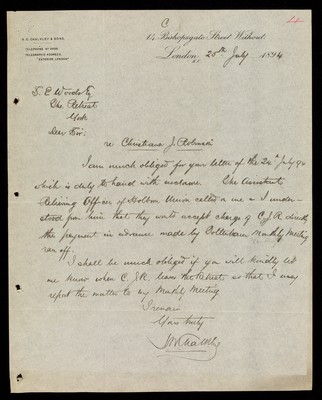 C
H. G. CHALKLEY & SONS.
TELEGRAPHIC ADDRESS,
14 Bishopsgate Street Without.
London, E.C. 25th July 1894
S. E. Woods Esq
The Retreat
York
Dear Sir:
re Christiana J. Robinson
I am much obliged for your letter of the 24th July 94
which is duly to hand with enclosure. The Assistant
Relieving Officer of Holborn Union called on me & I under-
stood from him that they would accept charge of C. J. R. directly
the payment in advance made by Monthly Meeting
ran off.
I shall be much obliged if you will kindly let
me know when C. J. R. leaves the Retreat so that I may
report the matter to my Monthly Meeting
I remain
Yours truly